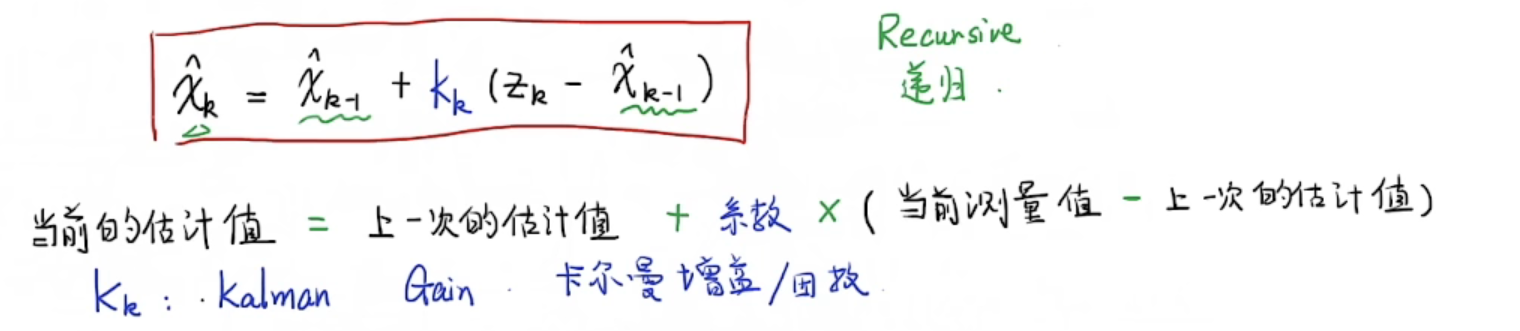 x̂ₖ = x̂ₖ₋₁ + kₖ (zₖ - x̂ₖ₋₁)
Recursive
递归.
当前的估计值 = 上一次的估计值 + 系数 × (当前测量值 - 上一次的估计值)
Kₖ : Kalman Gain 卡尔曼增益/因数